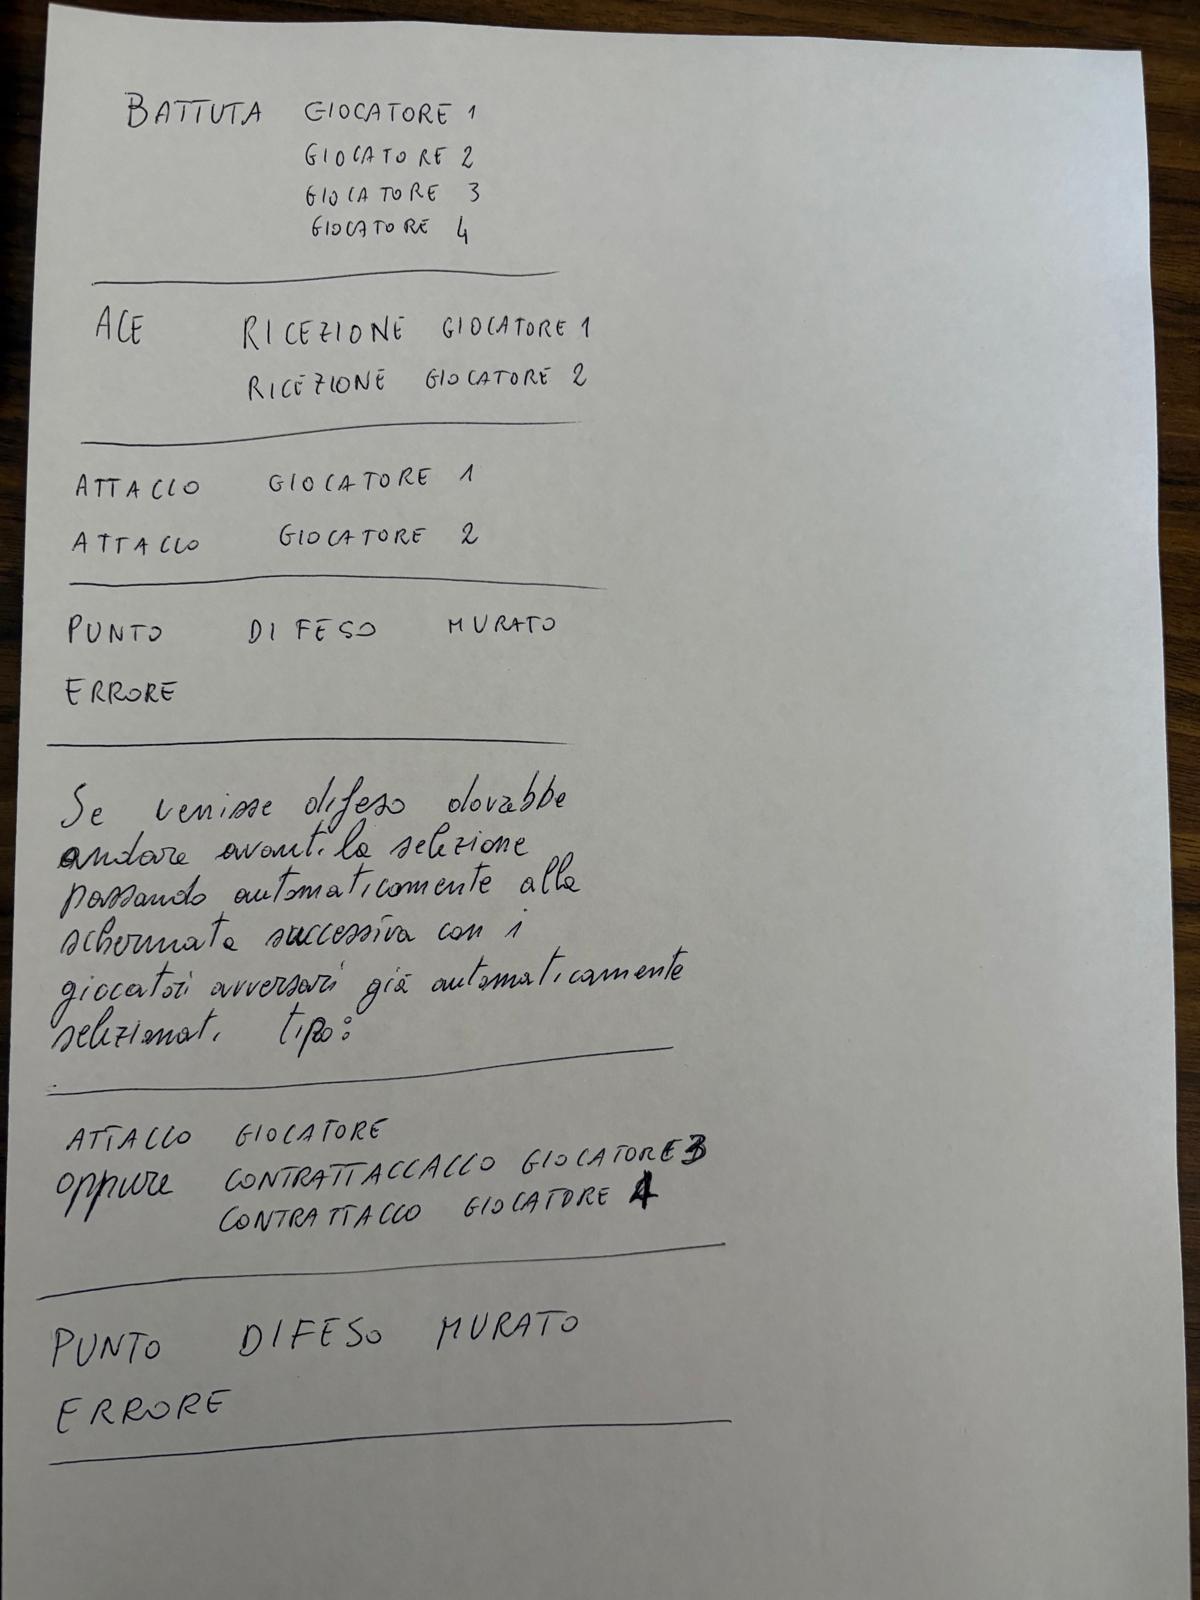 BATTUTA GIOCATORE 1
GIOCATORE 2
GIOCATORE 3
GIOCATORE 4
ACE RICEZIONE GIOCATORE 1
RICEZIONE GIOCATORE 2
ATTACCO GIOCATORE 1
ATTACCO GIOCATORE 2
PUNTO DIFESO MURATO
ERRORE
Se venisse difeso dovrebbe
andare avanti la selezione
passando automaticamente alla
schermata successiva con i
giocatori avversari già automaticamente
selezionati tipo:
ATTACCO GIOCATORE
oppure CONTRATTACCACCO GIOCATORE 3
CONTRATTACCO GIOCATORE 4
PUNTO DIFESO MURATO
ERRORE